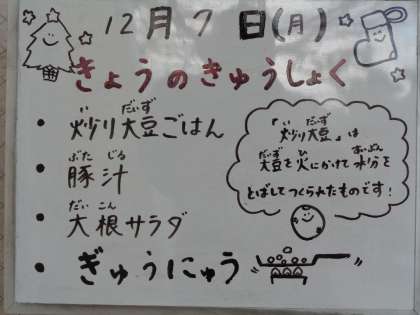 12月7日(月)
きょうのきゅうしょく
・炒り大豆ごはん
・豚汁
・大根サラダ
・ぎゅうにゅう
「炒り大豆」は
大豆を火にかけて水分を
とばしてつくられたものです！